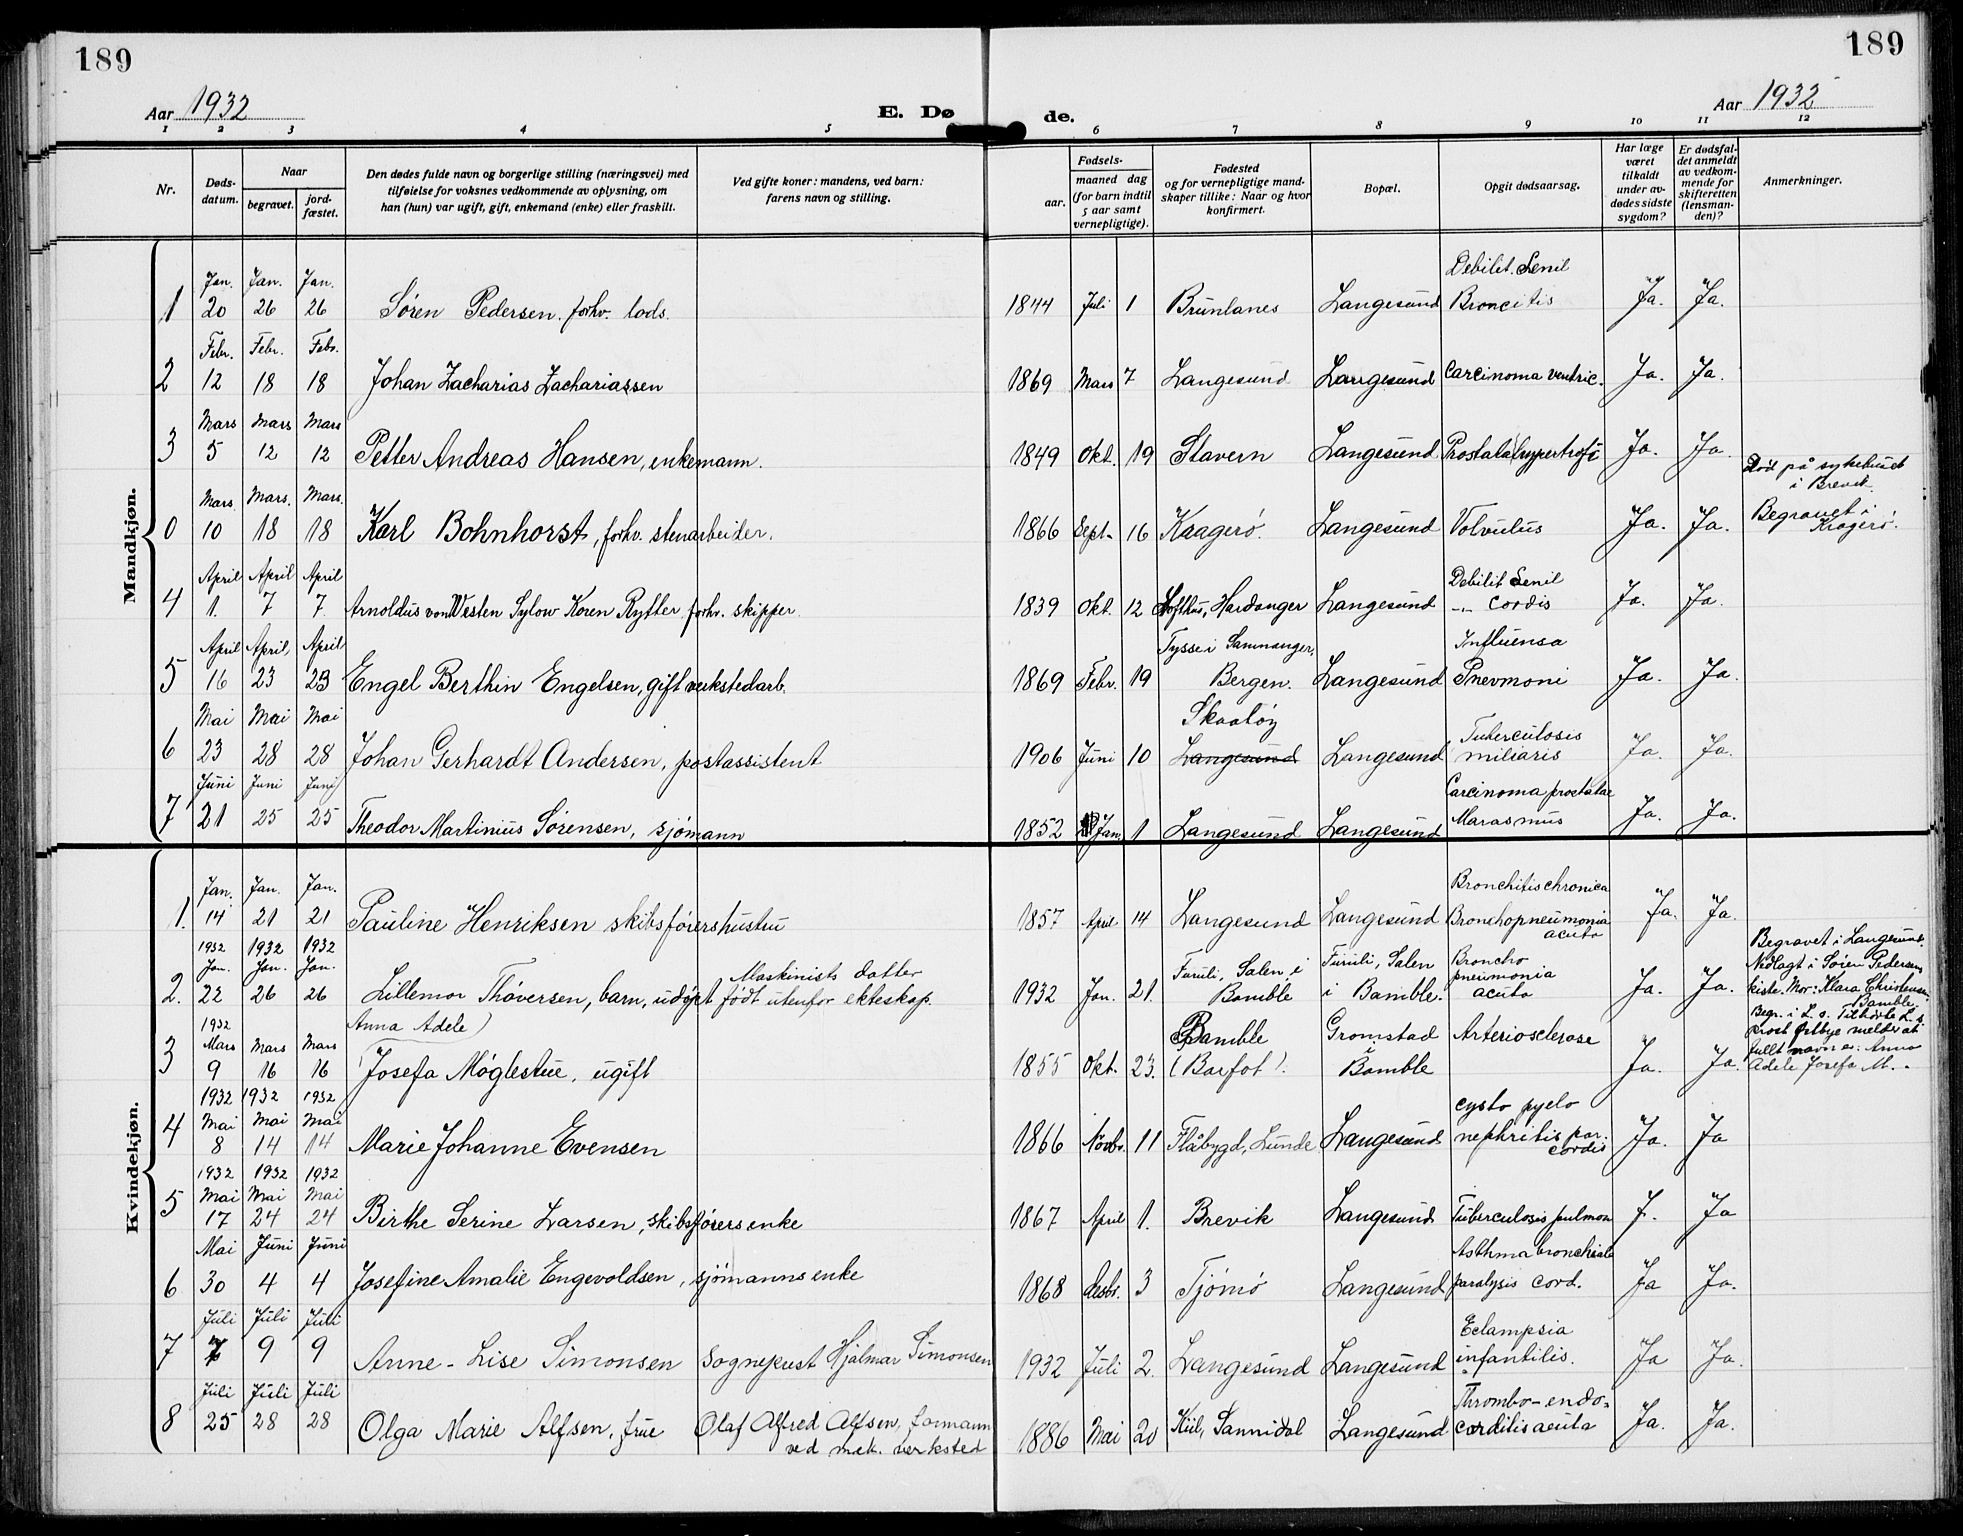 189
189
Aar 1932
E. Dø
de.
Aar 1932
1 2 3 4 5 6 7 8 9 10 11 12
Nr.
Døds-
datum.
Naar
begravet.
jord-
fæstet.
Den dødes fulde navn og borgerlige stilling (næringsvei) med
tilføielse for voksnes vedkommende av oplysning, om
han (hun) var ugift, gift, enkemand (enke) eller fraskilt.
Ved gifte koner: mandens, ved barn:
farens navn og stilling.
Fødsels-
aar.
maaned dag
(for barn indtil
5 aar samt
vernepligtige).
Fødested
og for vernepligtige mand-
skaper tillike: Naar og hvor
konfirmert.
Bopæl.
Opgit dødsaarsag.
Har læge
været
tilkaldt
under av-
dødes sidste
sygdom?
Er dødsfal-
det anmeldt
av vedkom-
mende for
skifteretten
(lensman-
den)?
Anmerkninger.
Mandkjøn.
Jan. Jan. Jan. Debilit. Senil
1 20 26 26 Søren Pedersen. forhv. lods. 1844 Juli 1 Brunlanes Langesund Broncitis Ja. Ja.
Febr. Febr. Febr.
2 12 18 18 Johan Zacharias Zachariassen 1869 Mars 7 Langesund Langesund Carcinoma ventric. Ja. Ja.
Mars Mars Mars
3 5 12 12 Petter Andreas Hansen, enkemann. 1849 Okt. 19 Stavern Langesund Prostatahypertrofi Ja. Ja.
Død på sykehuset
i Brevik.
Mars. Mars. Mars.
0 10 18 18 Karl Bohnhorst, forhv. stenarbeider. 1866 Sept. 16 Kragerø. Langesund Volvulus Ja. Ja. Begravet i
Kragerø.
April April April Debilit Senil
4 1. 7 7. Arnoldus von Westen Sylow Koren Rytter forhv. skipper 1839 Okt. 12 Lofthus, Hardanger Langesund -"- Cordis Ja. Ja.
April April, April Tysse i Samnanger, Influensa
5 16 23 23 Engel Berthin Engelsen, gift verkstedarb. 1869 Febr. 19 Bergen. Langesund Pnevmoni Ja. Ja.
Mai Mai Mai Skaatøy Tuberculosis
6 23 28 28 Johan Gerhardt Andersen, postassistent 1906 Juni 10 Langesund Langesund miliaris Ja. Ja.
Juni Juni Juni Carcinoma prostatae
7 21 25 25 Theodor Martinius Sørensen, sjømann 1852 Jan. 1 Langesund Langesund Marasmus Ja. Ja.
Kvindekjøn.
Jan. Jan. Jan. Bronchitis chronica
1. 14 21 21 Pauline Henriksen skibsførershustru 1857 April 14 Langesund Langesund Bronchopneumonia
acuta Ja. Ja.
1932 1932 1932
Jan. Jan. Jan. Maskinists datter Furuli, Salen i Furuli, Salen Broncho
pneumonia
2. 22 26 26 Lillemor Thoversen, barn, udøpt født utenfor ekteskap. 1932 Jan. 21. Bamble i Bamble. acuta Ja. Ja.
Begravet i Langesund.
Nedlagt i Søren Pedersens
kiste. Mor: Klara Christensen
Bamble.
1932
Mars Mars Mars Anna Adele) Bamble Gromstad Arteriosclerose
3 9 16 16 Josefa Møglestue, ugift 1855 Okt. 23. (Barfot). i Bamble Ja. Ja.
Begr. i L. s. Tilhørte L. s
Prost Ørbye melder at
fullt navn er: Anna
Adele Josefa M.
1932 1932 1932
Mai Mai Mai cysto pyelo
4 8 14 14 Marie Johanne Evensen 1866 Novbr. 11 Flåbygd, Lunde Langesund nephritis par.
cordis Ja. Ja
1932 1932 1932
Mai Mai Mai
5 17 24 24 Birthe Serine Larsen, skibsførers enke 1867 April 1. Brevik Langesund Tuberculosis pulmon J. Ja
Mai Juni Juni Asthma bronchiale
6 30 4 4 Josefine Amalie Engevoldsen, sjømanns enke 1868 Desbr. 3 Tjømø Langesund paralysis cord. Ja Ja.
Juli Juli Juli Eclampsia
7 7 9 9 Anne-Lise Simonsen Sogneprest Hjalmar Simonsen 1932 Juli 2. Langesund Langesund infantilis. Ja Ja.
Juli Juli Juli Thrombo-endo-
8 25 28 28 Olga Marie Alfsen, frue Olaf Alfred Alfsen, formann
ved mek. verksted 1886 Mai 20 Kiil, Sannidal Langesund carditis acuta Ja. Ja.